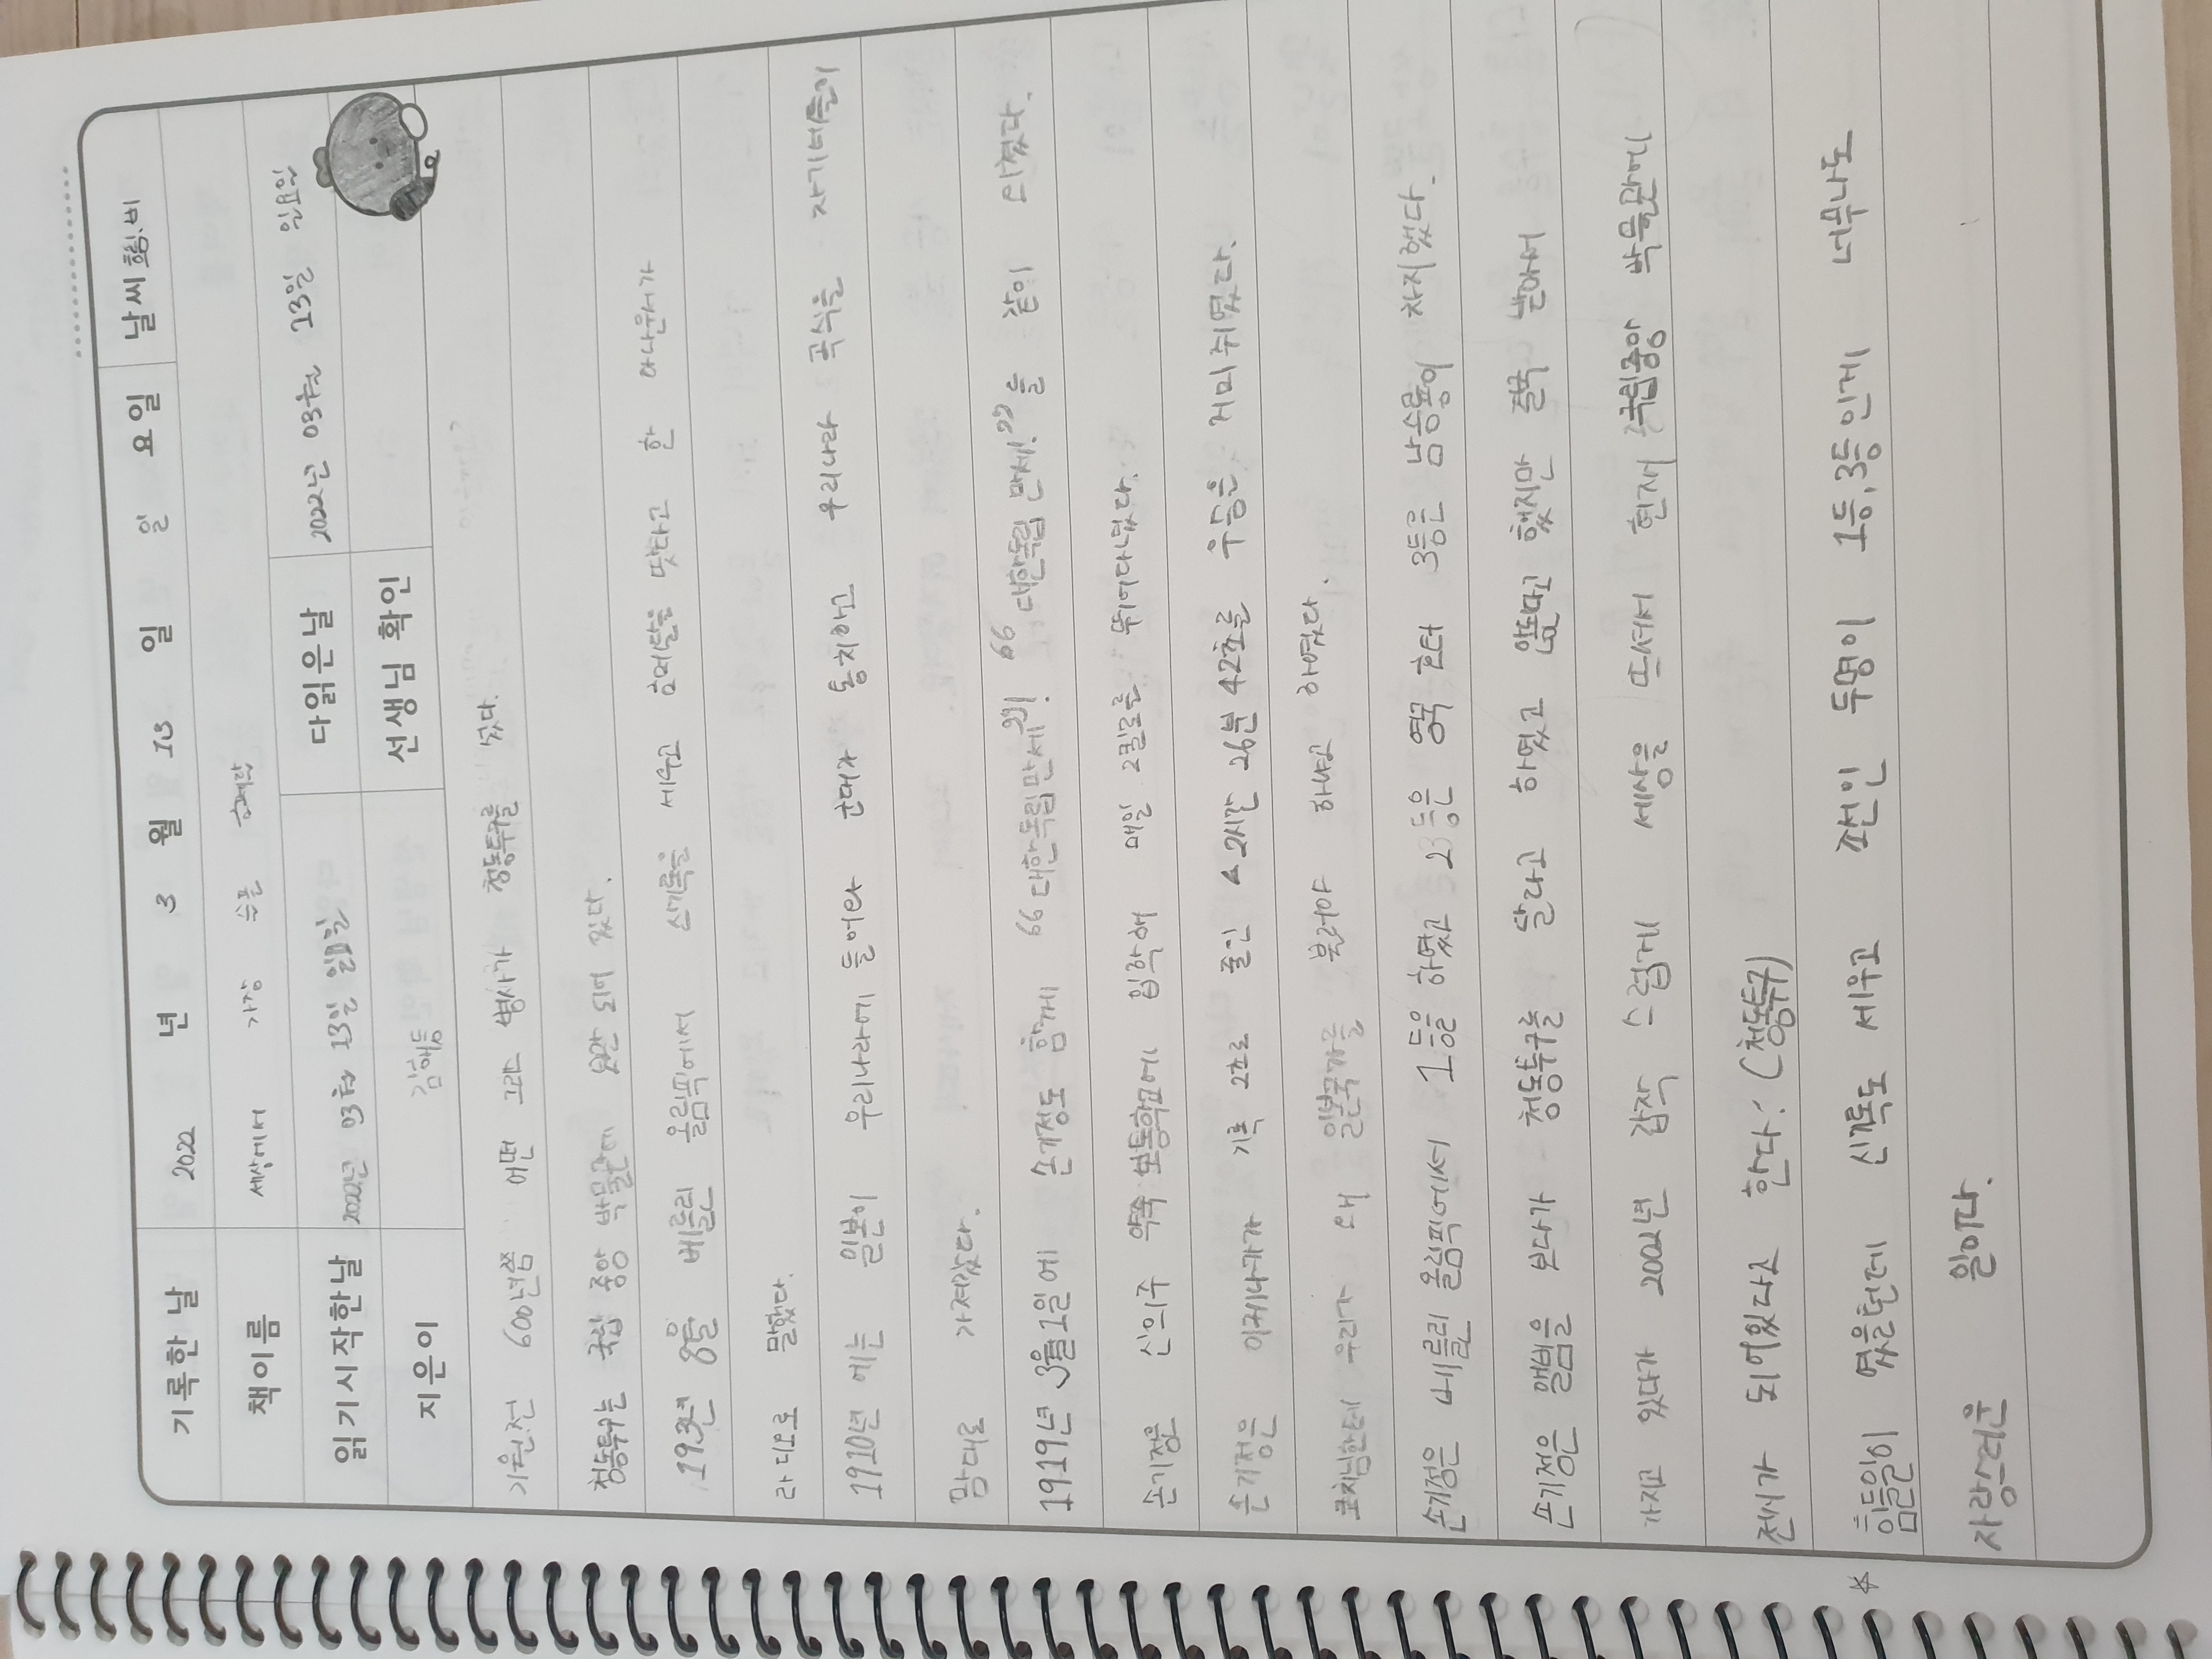 기록한 날 2022 년 3 월 13 일 일 요일 날씨 흐림.비
책이름 세상에서 가장 슬픈 금메달
읽기시작한날 2022년 03월 13일 일요일 다읽은날 2022년 03월 13일 일요일
지은이 김해등 선생님 확인
기원.전 600년쯤 어떤 그리스 병사가 청동투구를 썼다.
청동투구는 국립 중앙 박물관에 보관 되어 있다.
8월 베를린 올림픽에서 신기록을 세우고 금메달을 땃다고 한 아나운서가
라디오로 말했다.
1910년 에는 일본이 우리나라에 들어와 군대가 통치하고 우리나라 곡식을 자기네들이
맘대로 가져갔다.
1919년 3월1일에 손기정도 함께 "대한독립만세"! "대한독립 만세!"를 같이 외쳤다.
손기정은 신의주 약죽 보통학교에 입학해 매일 2킬로를 뛰어다녔다.
손기정은 이케나카가 기록 2초로 줄인 2시간 26분 42초를 우승은 거머쥐였다.
코치님한테 우리가 왜 일본국가를 불러야 하냐고 하였다.
손기정은 베를린 올림픽에서 1등을 하였고 2등은 영국 하터 3등은 남승룡이 차지했다.
손기정은 앨범을 보다가 청동투구를 달라고 하였고 않된다고 했지만 결국 받아서
가지고 있다가 2002년 갑작 스럽게 세상을 뜨셔서 현재 국립중앙 박물관에
전씨가 되어있다고 한다. (청동투구)
☆ 힘들일이 였을텐데 신기록도 세우고 조선인 두명이 1등,3등인게 너무나도
자랑스러운 일이다.